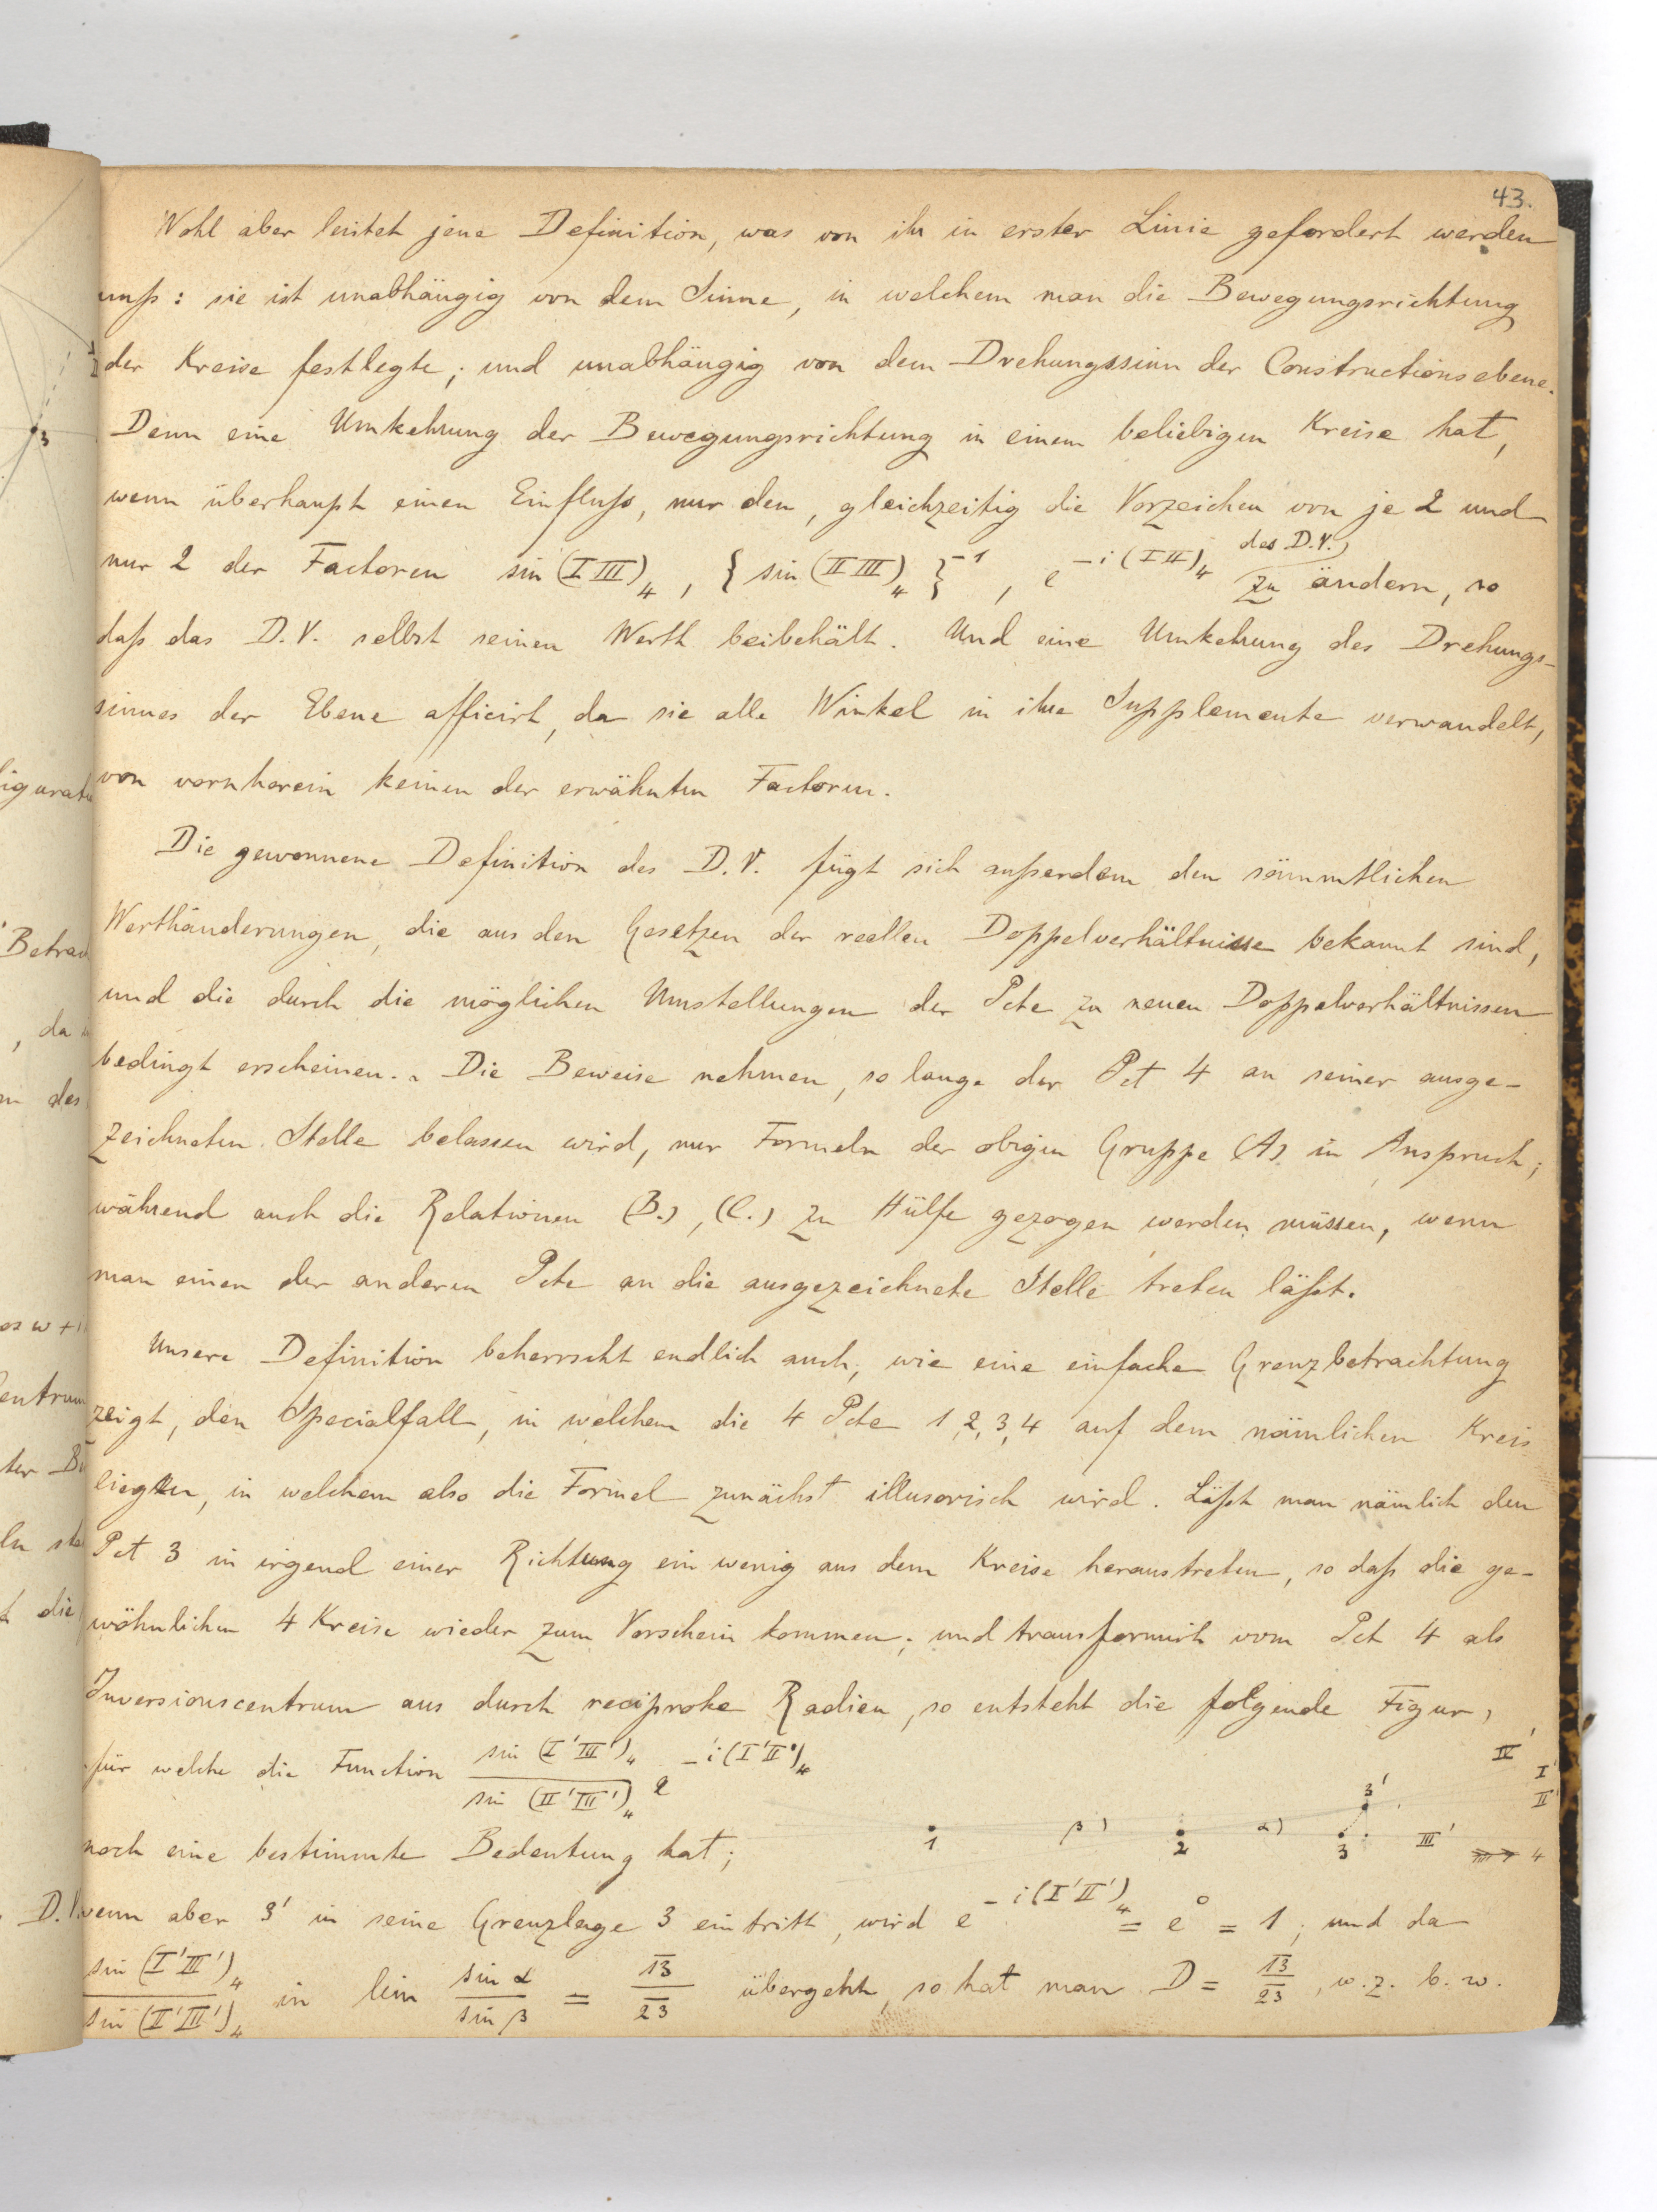 43.
Wohl aber leistet jene Definition, was von ihr in erster Linie gefordert werden
muß: sie ist unabhängig von dem Sinne, in welchem man die Bewegungsrichtung
der Kreise festlegte; und unabhängig von dem Drehungssinn der Constructionsebene.
Denn eine Umkehrung der Bewegungsrichtung in einem beliebigen Kreise hat,
wenn überhaupt einen Einfluß, nur den, gleichzeitig die Vorzeichen von je 2 und
nur 2 der Factoren sin (I III)₄, { sin (II III)₄ }⁻¹, e^{-i (I II)₄} des D.V. zu ändern, so
daß das D.V. selbst seinen Werth beibehält. Und eine Umkehrung des Drehungs-
sinnes der Ebene afficirt, da sie alle Winkel in ihre Supplemente verwandelt,
von vornherein keinen der erwähnten Factoren.
Die gewonnene Definition des D.V. fügt sich außerdem den sämmtlichen
Werthänderungen, die aus den Gesetzen der reellen Doppelverhältnisse bekannt sind,
und die durch die möglichen Umstellungen der Pcte zu neuen Doppelverhältnissen
bedingt erscheinen. Die Beweise nehmen, so lange der Pct 4 an seiner ausge-
zeichneten Stelle belassen wird, nur Formeln der obigen Gruppe (A) in Anspruch;
während auch die Relationen (B.), (C.) zu Hülfe gezogen werden müssen, wenn
man einen der anderen Pcte an die ausgezeichnete Stelle treten läßt.
Unsere Definition beherrscht endlich auch, wie eine einfache Grenzbetrachtung
zeigt, den Specialfall, in welchem die 4 Pcte 1, 2, 3, 4 auf dem nämlichen Kreis
liegen, in welchem also die Formel zunächst illusorisch wird. Läßt man nämlich den
Pct 3 in irgend einer Richtung ein wenig aus dem Kreise heraustreten, so daß die ge-
wöhnlichen 4 Kreise wieder zum Vorschein kommen; und transformirt vom Pct 4 als
Inversionscentrum aus durch reciproke Radien, so entsteht die folgende Figur,
für welche die Function sin (I'III')₄ / sin (II'III')₄ e^{-i (I'II')₄}
noch eine bestimmte Bedeutung hat;
IV' I' II' 3' 1 β) 2 α) 3 III' 4
wenn aber 3' in seine Grenzlage 3 eintritt, wird e^{-i (I'II')₄} = e⁰ = 1; und da
sin (I'III')₄ / sin (II'III')₄ in lim sin α / sin β = 13 / 23 übergeht, so hat man D = 13 / 23, w. z. b. w.